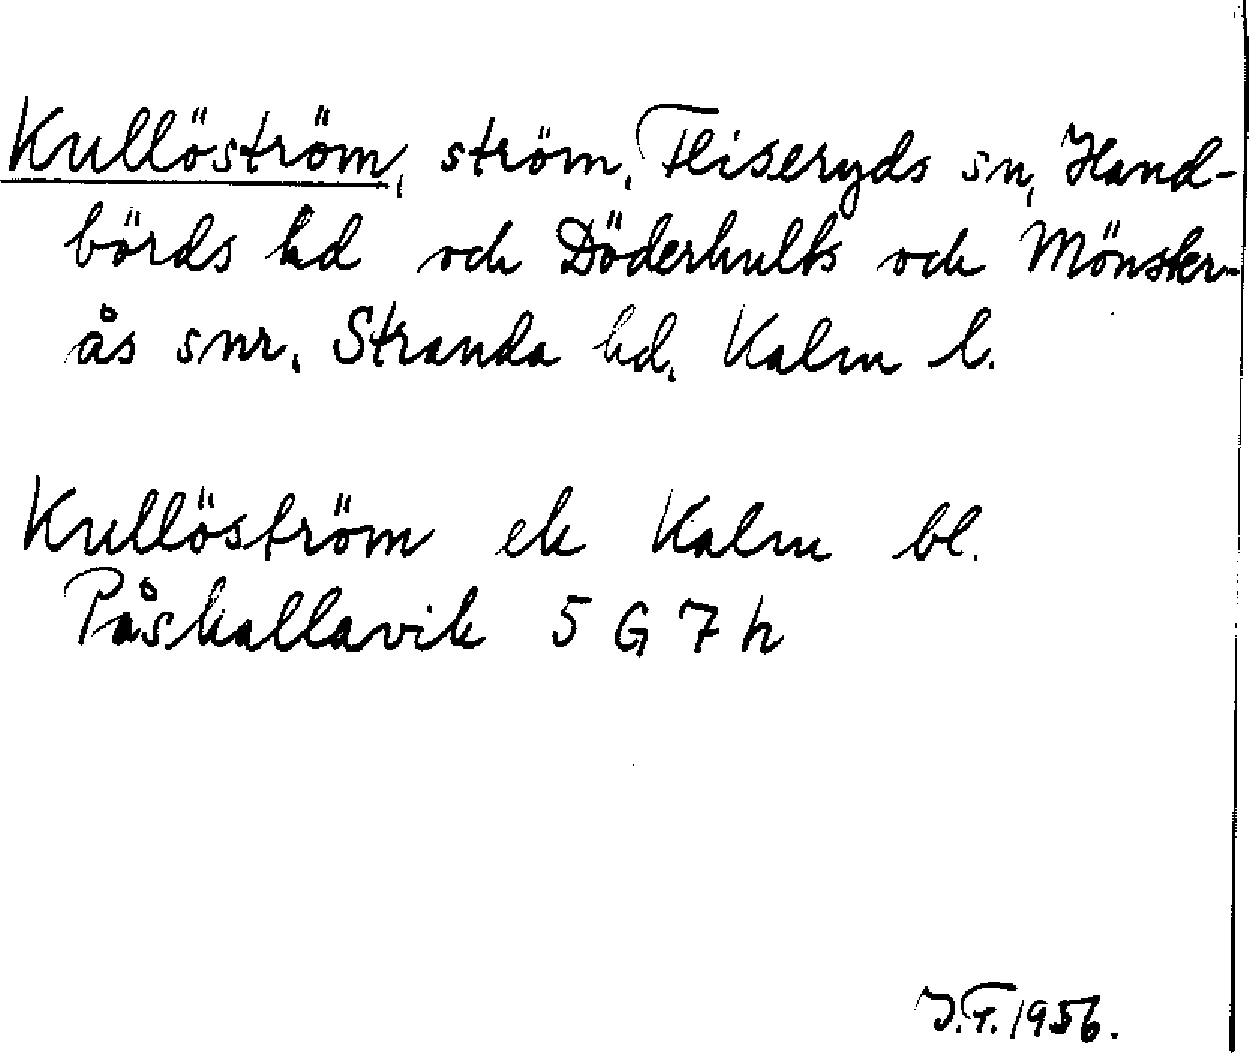 Kullöström, ström, Fliseryds sn, Hand-
börds hd och Döderhults och Mönster-
ås snr, Stranda hd, Kalm l.
Kullöström ek Kalm bl.
Påskallavik 5 G 7 h
J.F. 1956.